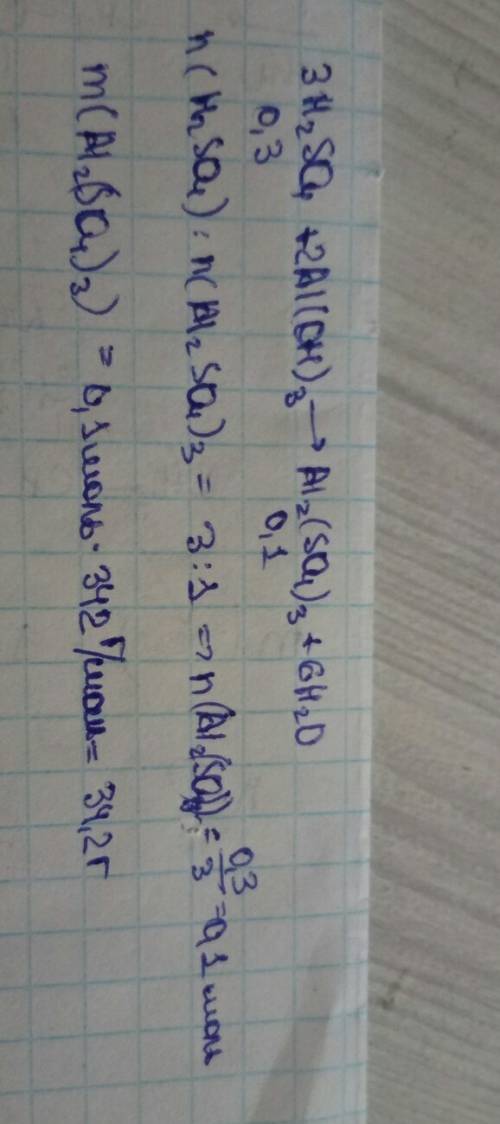 3H₂SO₄ + 2Al(OH)₃ → Al₂(SO₄)₃ + 6H₂O
0,3 0,1
n(H₂SO₄) : n(Al₂SO₄)₃ = 3:1 => n(Al₂(SO₄)₃) = 0,3/3 = 0,1 моль
m(Al₂(SO₄)₃) = 0,1моль · 342 г/моль = 34,2г